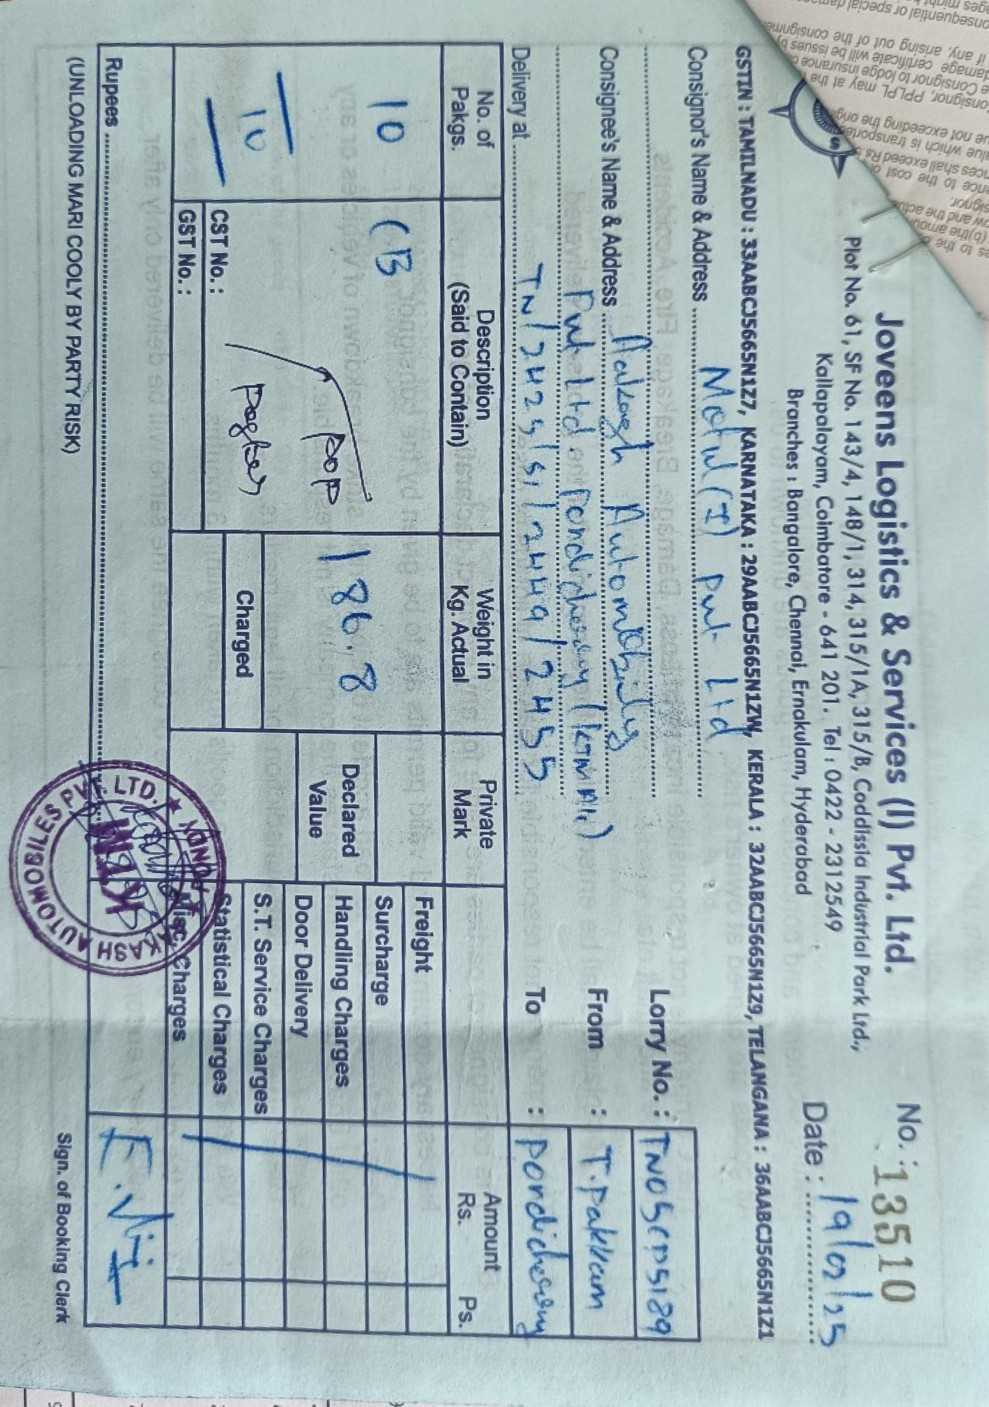 Joveens Logistics & Services (I) Pvt. Ltd.
No. : 13510
Plot No. 61, SF No. 143/4, 148/1, 314, 315/1A, 315/B, Coddissia Industrial Park Ltd.,
Kallapalayam, Coimbatore - 641 201. Tel : 0422 - 2312549
Date : 19/02/25
Branches : Bangalore, Chennai, Ernakulam, Hyderabad
GSTIN : TAMILNADU : 33AABCJ5665N1Z7, KARNATAKA : 29AABCJ5665N1ZW, KERALA : 32AABCJ5665N1Z9, TELANGANA : 36AABCJ5665N1Z1
Consignor's Name & Address Motul (I) Pvt Ltd
Lorry No. :
Consignee's Name & Address Aakash Automobiles
Pvt Ltd Pondicherry
From : T. Pakkam
Delivery at TN/2425/51/2449/2455
To : Pondicherry
No. of Pakgs.
Description (Said to Contain)
Weight in Kg. Actual
Private Mark
Amount
Rs. Ps.
10 CB
186.8
Freight
Surcharge
Declared Value
Handling Charges
T 10
POP
Door Delivery
Charged
S.T. Service Charges
CST No. :
Statistical Charges
GST No. :
Misc. Charges
Rupees
(UNLOADING MARI COOLY BY PARTY RISK)
Sign. of Booking Clerk
AKASH AUTOMOBILES PVT. LTD. ★ PONDY ★
KTM